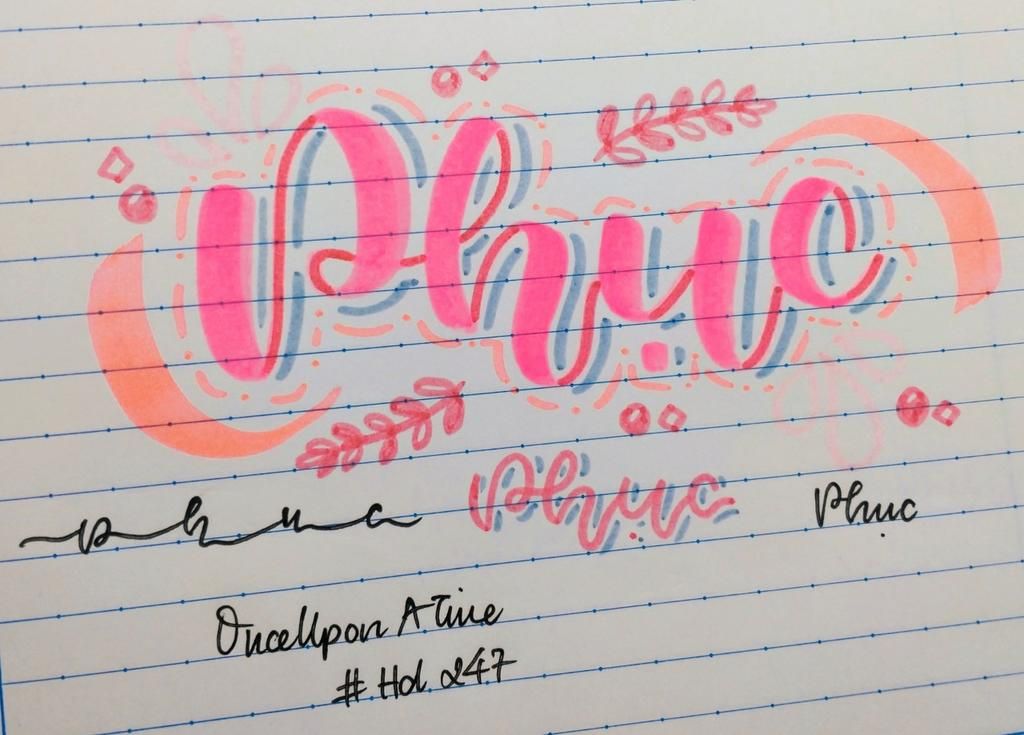 Phục
phuc Phục Phục
OnceUpon A Time
# Hd 247